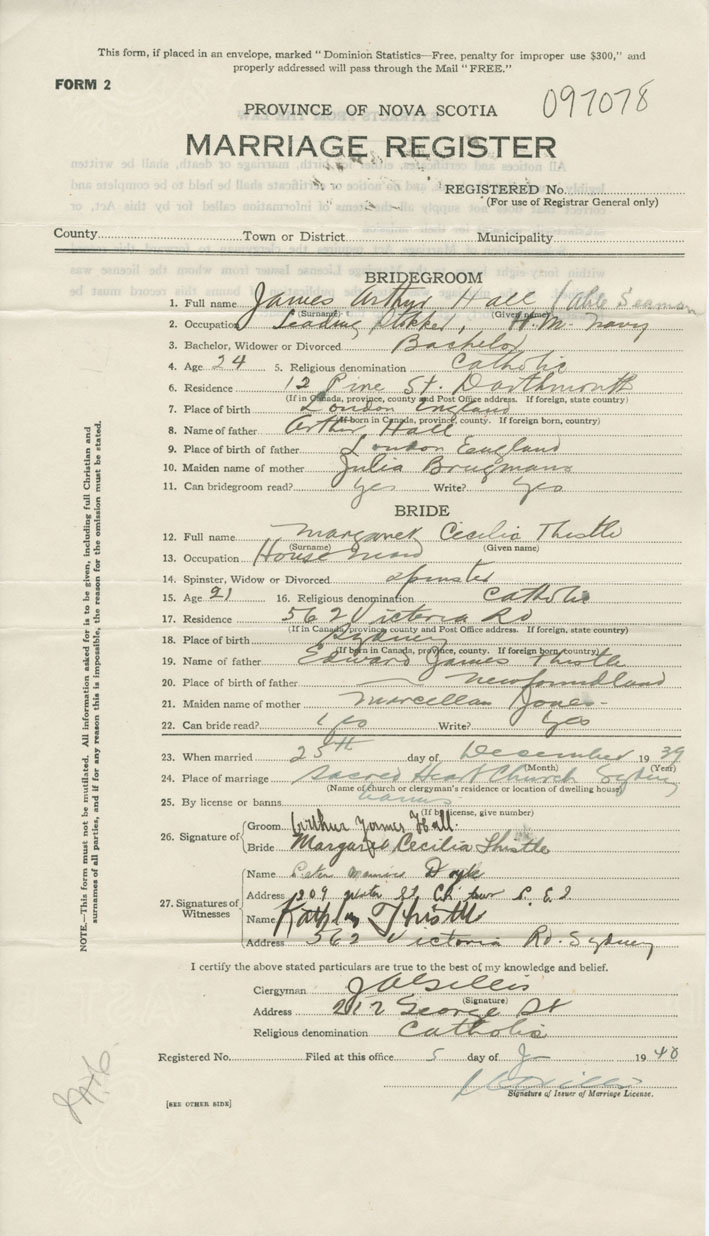 This form, if placed in an envelope, marked "Dominion Statistics—Free, penalty for improper use $300," and
properly addressed will pass through the Mail "FREE."
FORM 2
PROVINCE OF NOVA SCOTIA 097078
MARRIAGE REGISTER
REGISTERED No.
(For use of Registrar General only)
County Town or District Municipality
BRIDEGROOM
1. Full name James Arthur Hall (Able Seaman
(Surname) (Given name)
2. Occupation Leading Stoker, H.M. Navy
3. Bachelor, Widower or Divorced Bachelor
4. Age 24 5. Religious denomination Catholic
6. Residence 12 Pine St. Dartmouth
(If in Canada, province, county and Post Office address. If foreign, state country)
7. Place of birth London England
(If born in Canada, province, county. If foreign born, country)
8. Name of father Arthur Hall
9. Place of birth of father London England
10. Maiden name of mother Julia Brugmans
11. Can bridegroom read? Yes Write? Yes
BRIDE
12. Full name Margaret Cecilia Thistle
(Surname) (Given name)
13. Occupation House Maid
14. Spinster, Widow or Divorced spinster
15. Age 21 16. Religious denomination Catholic
17. Residence 562 Victoria Rd
(If in Canada, province, county and Post Office address. If foreign, state country)
18. Place of birth Sydney
(If born in Canada, province, county. If foreign born, country)
19. Name of father Edward James Thistle
20. Place of birth of father Newfoundland
21. Maiden name of mother Marcellan Jones-
22. Can bride read? yes Write? Yes
23. When married 25th day of December 1939
(Month) (Year)
24. Place of marriage Sacred Heart Church Sydney
(Name of church or clergyman's residence or location of dwelling house)
25. By license or banns banns
(If by license, give number)
26. Signature of
Groom Arthur James Hall.
Bride Margaret Cecilia Thistle
27. Signatures of Witnesses
Name Peter Doyle
Address 209 St P.E.I
Name Thistle
Address 562 Victoria Rd. Sydney
I certify the above stated particulars are true to the best of my knowledge and belief.
Clergyman
(Signature)
Address 212 George St
Religious denomination Catholic
Registered No. Filed at this office 5 day of Ja 1940
Signature of Issuer of Marriage License.
[SEE OTHER SIDE]
NOTE.—This form must not be mutilated. All information asked for is to be given, including full Christian and
surnames of all parties, and if for any reason this is impossible, the reason for the omission must be stated.